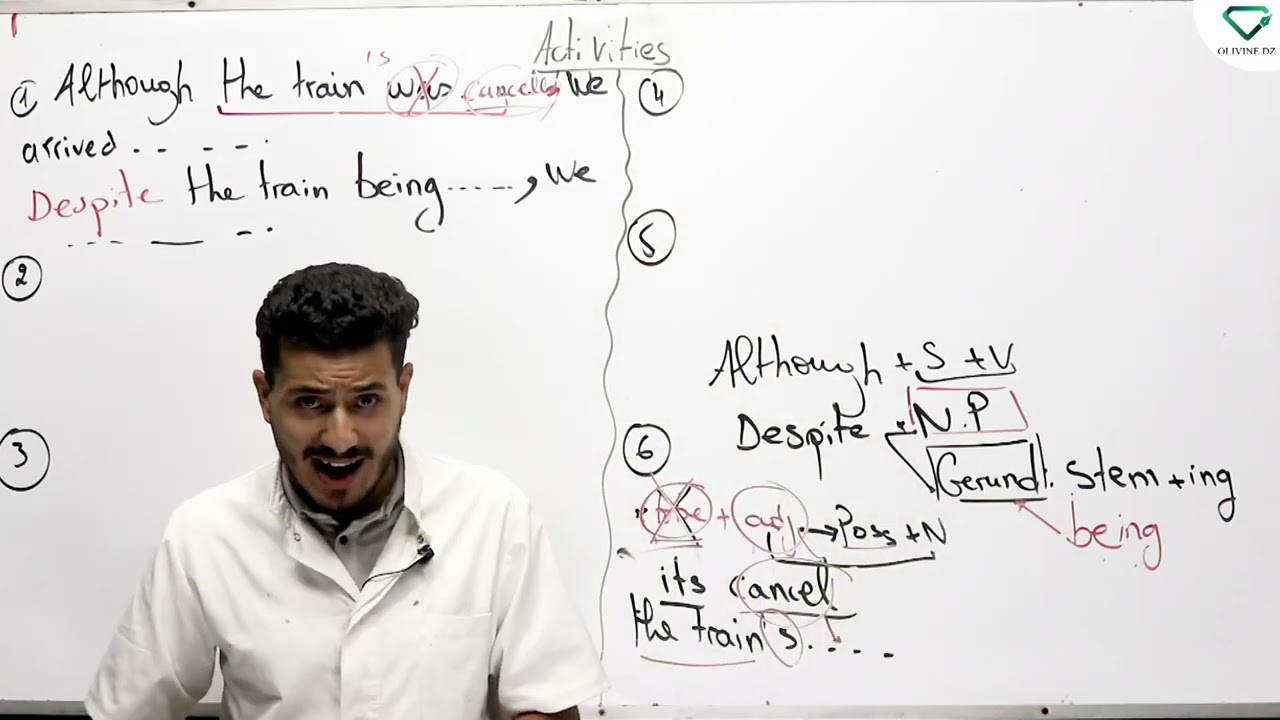 Activities
① Although the train's was canceled we
arrived . . - - - .
Despite the train being ....., we
... — - .
②
3
④
⑤
Although + S + V
Despite N.P
Gerund. Stem + ing
being
⑥
to be + adj → Poss + N
its cancel.
the train's. . . . .
OLIVINE DZ